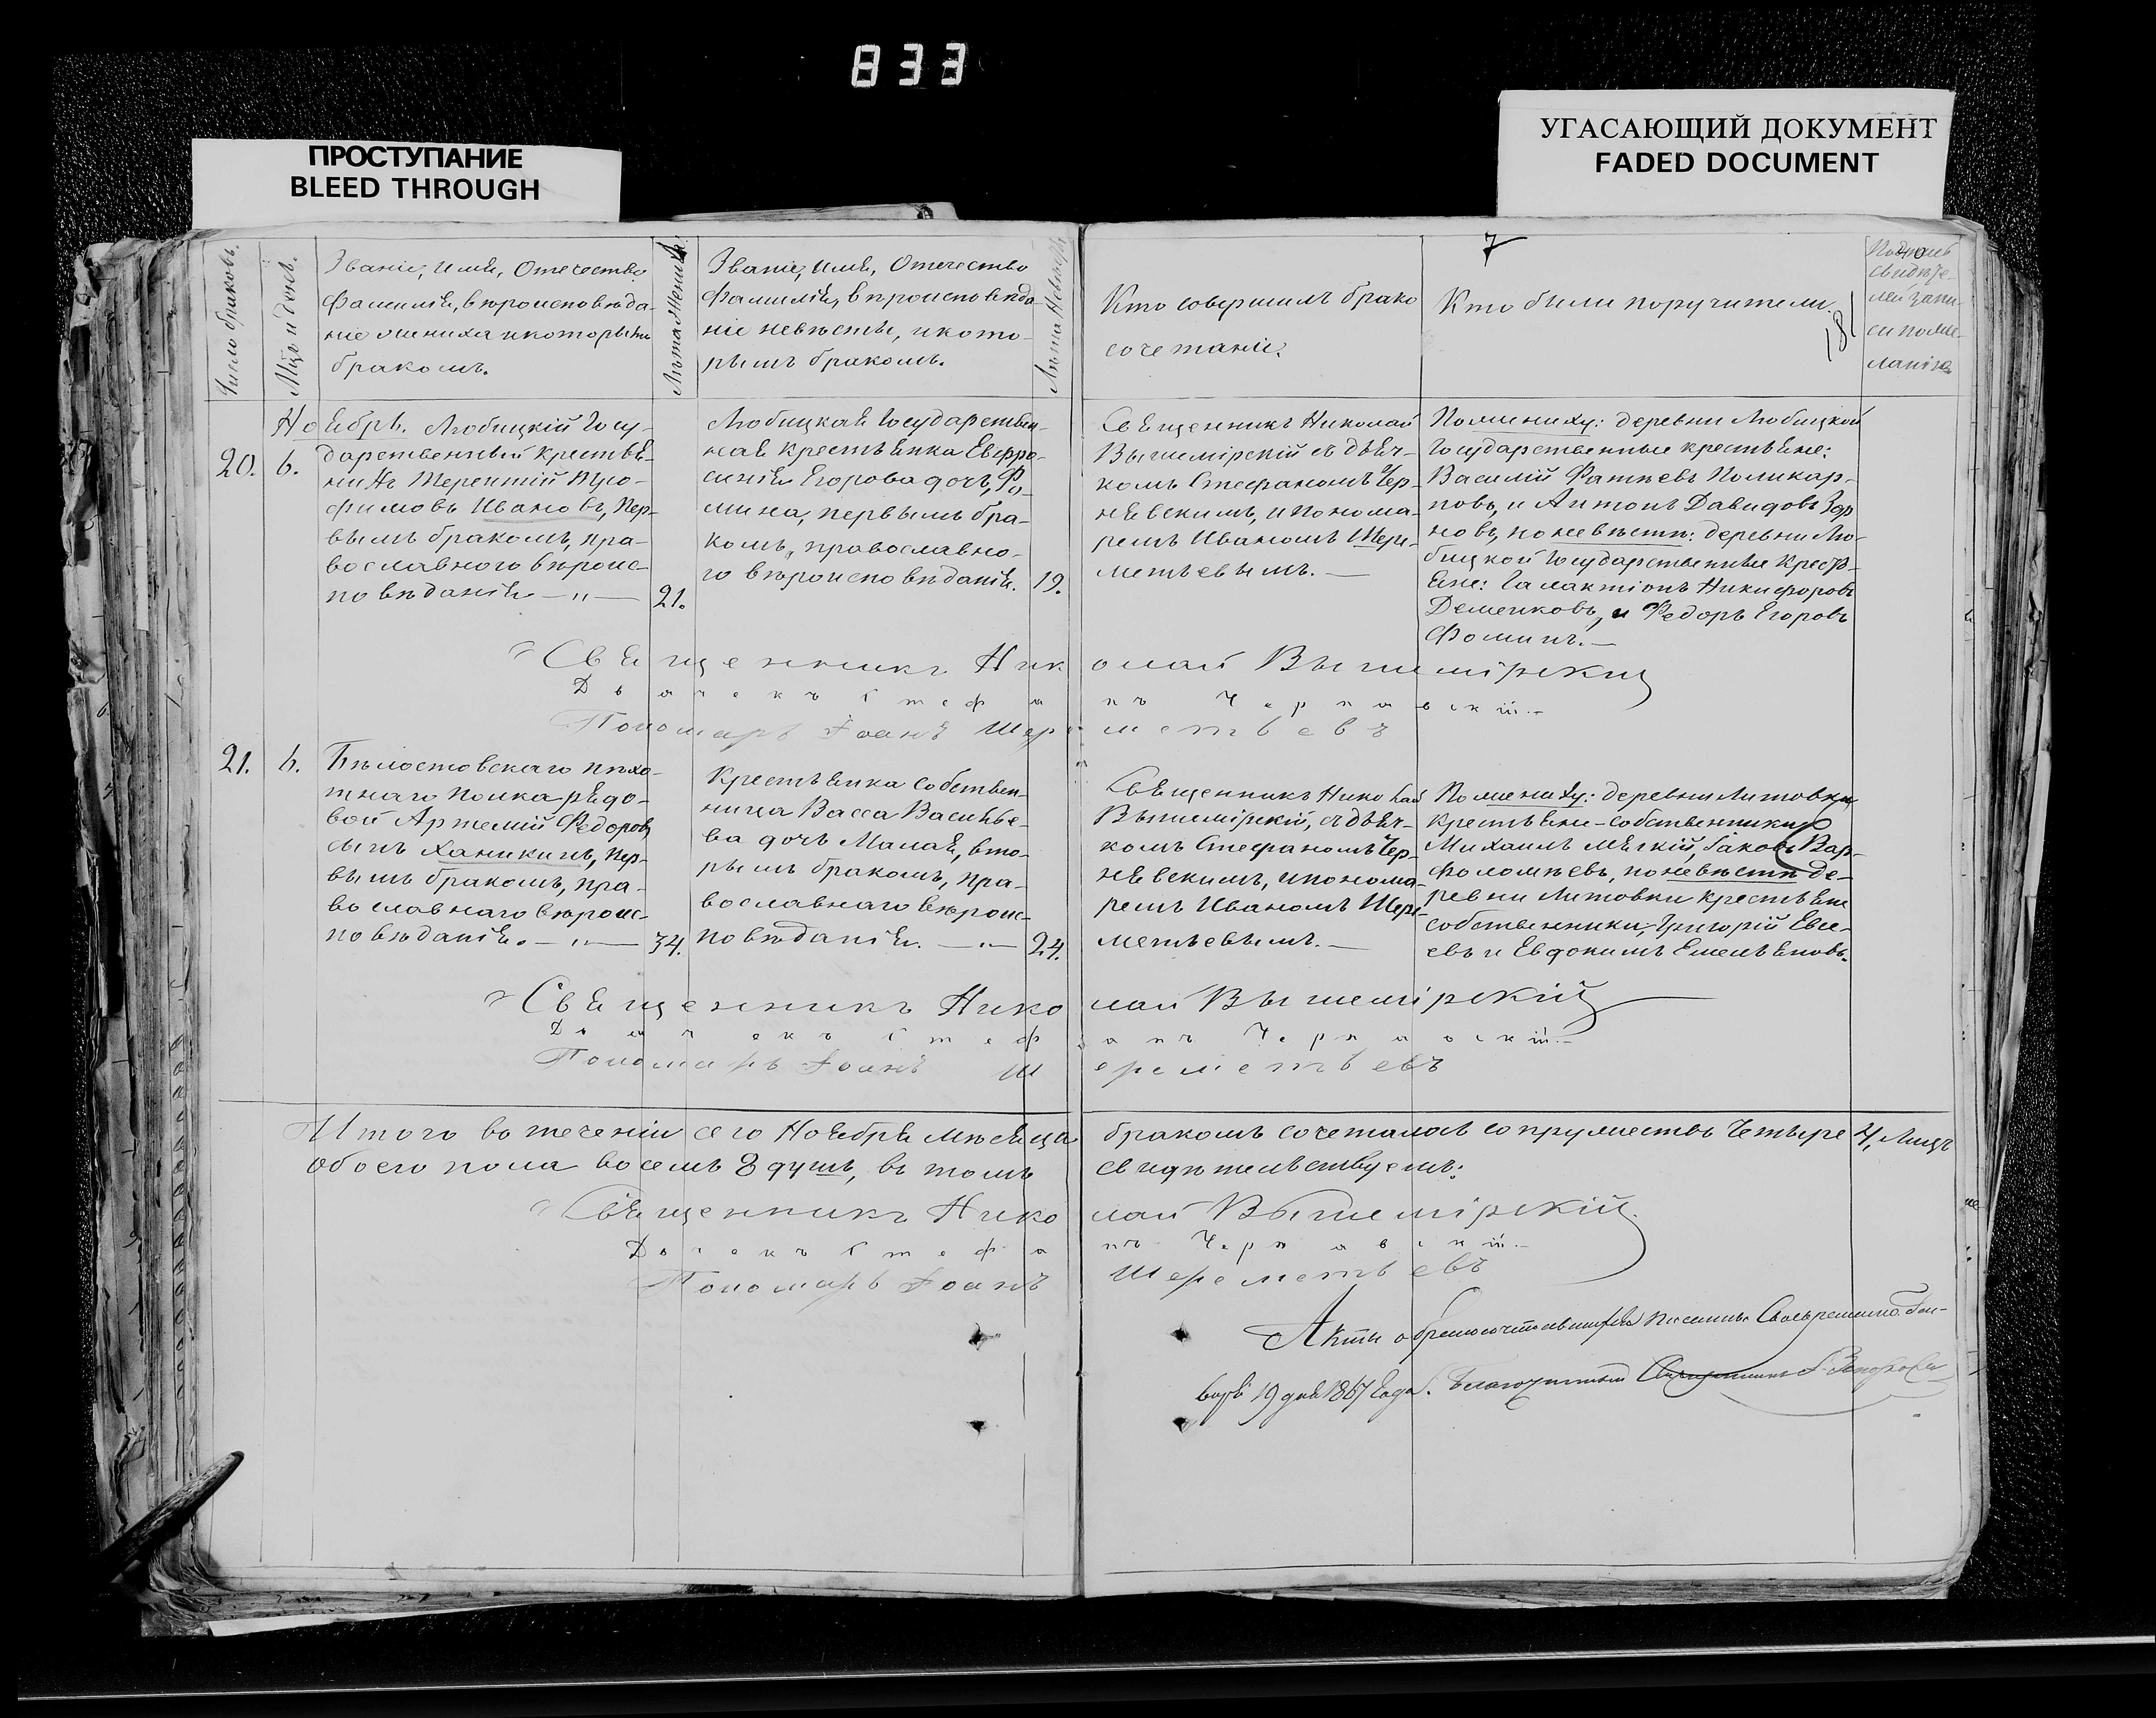 833
ПРОСТУПАНИЕ
BLEED THROUGH
УГАСАЮЩИЙ ДОКУМЕНТ
FADED DOCUMENT
7
181
Число браковъ.
Мцъ и день.
Званіе, имя, Отечество
фамилія, вѣроисповѣда-
ніе жениха и которымъ
бракомъ.
Лѣта Жениха.
Званіе, имя, Отечество
Фамилія, вѣроисповѣда-
ніе невѣсты, и кото-
рымъ бракомъ.
Лѣта Невѣсты
Кто совершилъ брако
сочетаніе.
Кто были поручители.
свидѣте-
лей запи-
си по же-
ланію
Ноябрь. Любицкій Госу-
20. 6. дарственный крестья-
нинъ Терентій Тро-
фимовъ Ивановъ, пер-
вымъ бракомъ, пра-
вославнаго вѣроис-
повѣданія — „ — 21.
Любицкая Государствен-
ная крестьянка Евфро-
синія Егорова дочь, Фо-
мина, первымъ бра-
комъ, православно-
го вѣроисповѣданія. 19.
Священникъ Николай
Вышемірскій съ дьяч-
комъ Стефаномъ Чер-
нявскимъ, и понома-
ремъ Иваномъ Шере-
метьевымъ. —
По жениху: деревни Любицкой
Государственные крестьяне:
Василій Фатѣевъ Поликар-
повъ, и Антонъ Давидовъ
новъ, по невѣстѣ: деревни Лю-
бицкой Государственные крестья-
яне: Галактіонъ Никифоровъ
Деменковъ, и Федоръ Егоровъ
Фоминъ. —
Священникъ Николай Вышемірскій
Дьячекъ Стефанъ Чернявскій. —
Пономарь Іоаннъ Шереметьевъ
21. 6. Бѣлостокскаго пѣхо-
тнаго полка рядо-
вой Артемій Федоровъ
сынъ Ханикинъ, пер-
вымъ бракомъ, пра-
вославнаго вѣроис-
повѣданія. — „ — 34.
Крестьянка собствен-
ница Васса Василье-
ва дочь Малая, вто-
рымъ бракомъ, пра-
вославнаго вѣроис-
повѣданія. — „ — 24.
Священникъ Николай
Вышемірскій, съ дьяч-
комъ Стефаномъ Чер-
нявскимъ, и понома-
ремъ Иваномъ Шере-
метьевымъ. —
По жениху: деревни Литовки
крестьяне-собственники
Михаилъ Мягкій, Іаковъ Вар-
фоломѣевъ, по невѣстѣ де-
ревни Литовки крестьяне
собственники, Григорій Евсе-
евъ и Евдокимъ Емельяновъ.
Священникъ Николай Вышемірскій
Дьячекъ Стефанъ Чернявскій. —
Пономарь Іоаннъ Шереметьевъ
Итого въ теченіи сего Ноября мѣсяца бракомъ сочеталось супружествъ Четыре 4, Лицъ
обоего пола восемь 8 душъ, въ томъ свидѣтельствуемъ:
Священникъ Николай Вышемірскій.
Дьячекъ Стефанъ Чернявскій. —
Пономарь Іоаннъ Шереметьевъ
Акты о бракосочетавшихся писаны Своевременно. Ген-
варя 19 дня 1867 года. Благочинный Священникъ